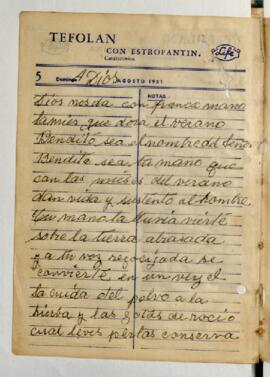 TEFOLAN
CON ESTROFANTIN.
Cardiotónico
Life
5 Domingo AGOSTO 1951
A Dios
NOTAS
Dios nos da con franca mano
la mies que dora el verano
Bendito sea el nombre del Señor
Bendito sea la mano que
con las mieses del verano
dan vida y sustento al hombre.
Tu mano la lluvia vierte
sobre la tierra abrasada
y a tu voz regocijada se
convierte en un verjel
la cuida del polvo a la
hierba y las gotas de rocio
cual leves perlas conserva